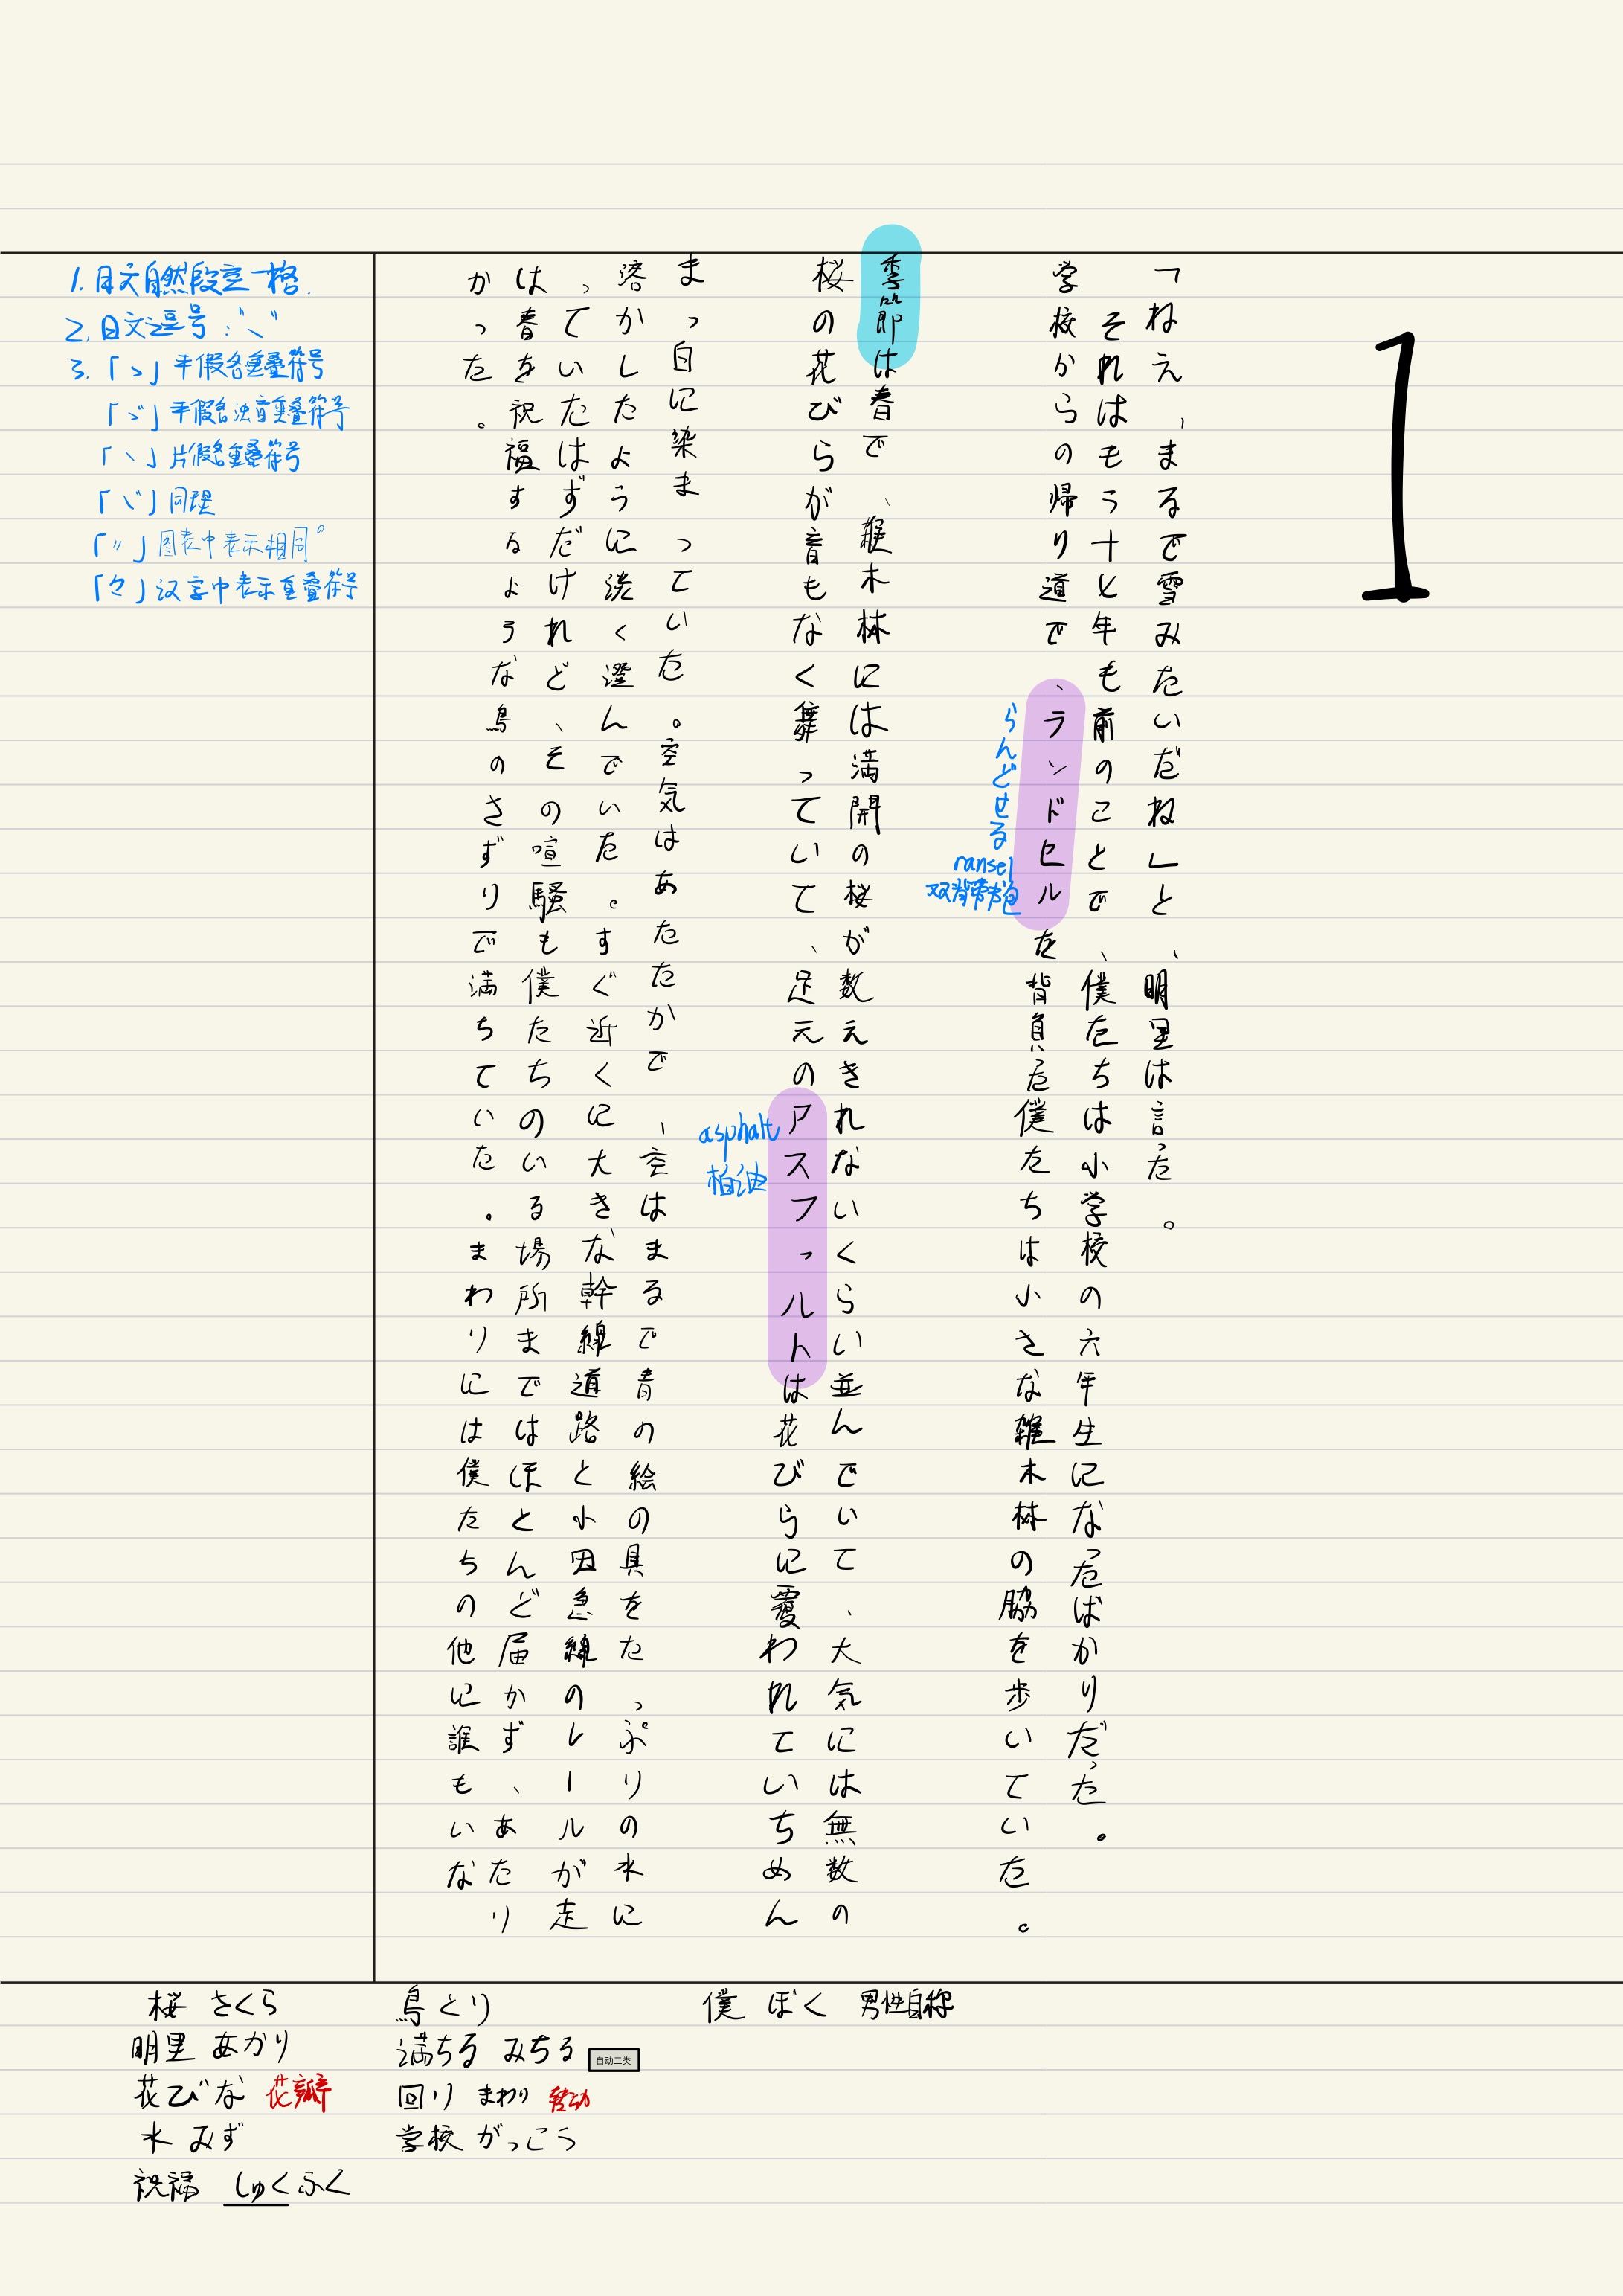 1
「ねえ、まるで雪みたいだね」と、明里は言った。
それはもう十と年も前のことで、僕たちは小学校の六年生になったばかりだった。
学校からの帰り道で、ランドセルを背負った僕たちは小さな雑木林の脇を歩いていた。
らんどせる
ransel
双背带书包
季節は春で、雑木林には満開の桜が数えきれないくらい並んでいて、大気には無数の
桜の花びらが音もなく舞っていて、足元のアスファルトは花びらに覆われていちめん
asphalt
柏油
まっ白に染まっていた。空気はあたたかで、空はまるで青の絵の具をたっぷりの水に
溶かしたように淡く澄んでいた。すぐ近くに大きな幹線道路と小田急線のレールが走
っていたはずだけれど、その喧騒も僕たちのいる場所まではほとんど届かず、あたり
は春を祝福するような鳥のさずりで満ちていた。まわりには僕たちの他に誰もいな
かった。
1. 日文自然段空一格.
2. 日文逗号:“、”
3.「ゝ」平假名重叠符号
「ゞ」平假名浊音重叠符号
「ヽ」片假名重叠符号
「ヾ」同理
「〃」图表中表示相同。
「々」汉字中表示重叠符号
桜 さくら
明里 あかり
花びな 花瓣
水 みず
祝福 しゅくふく
鳥 とり
満ちる みちる 自动二类
回り まわり
学校 がっこう
僕 ぼく 男性自称